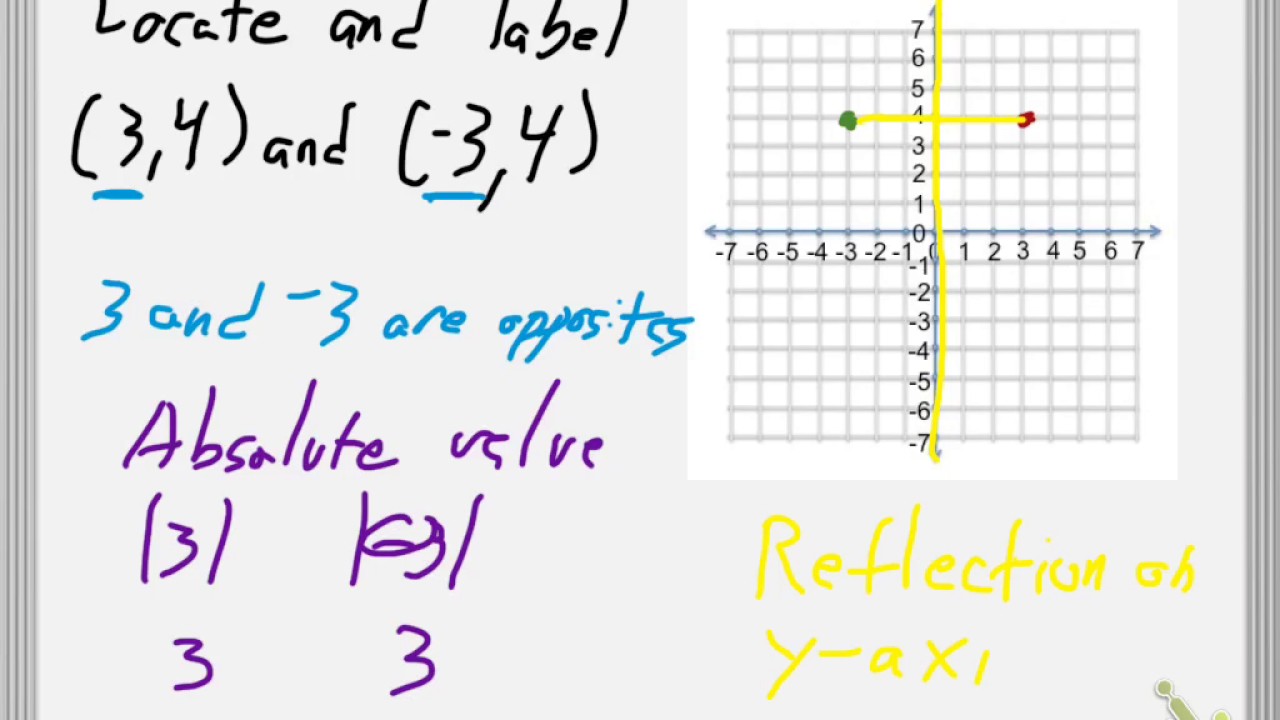 Locate and label
(3,4) and (-3,4)
3 and -3 are opposites
Absolute value
|3| |-3|
3 3
7
6
5
4
3
2
1
0
-7 -6 -5 -4 -3 -2 -1 0 1 2 3 4 5 6 7
-1
-2
-3
-4
-5
-6
-7
Reflection on
y-axi